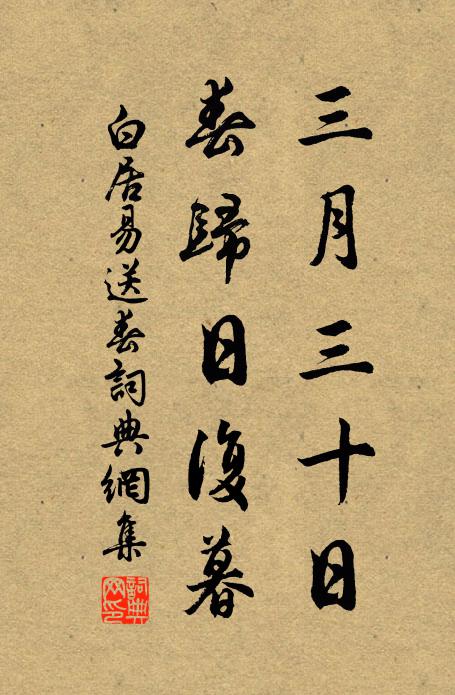 三月三十日
春歸日復暮
白居易送春詞典網集
詞典網印